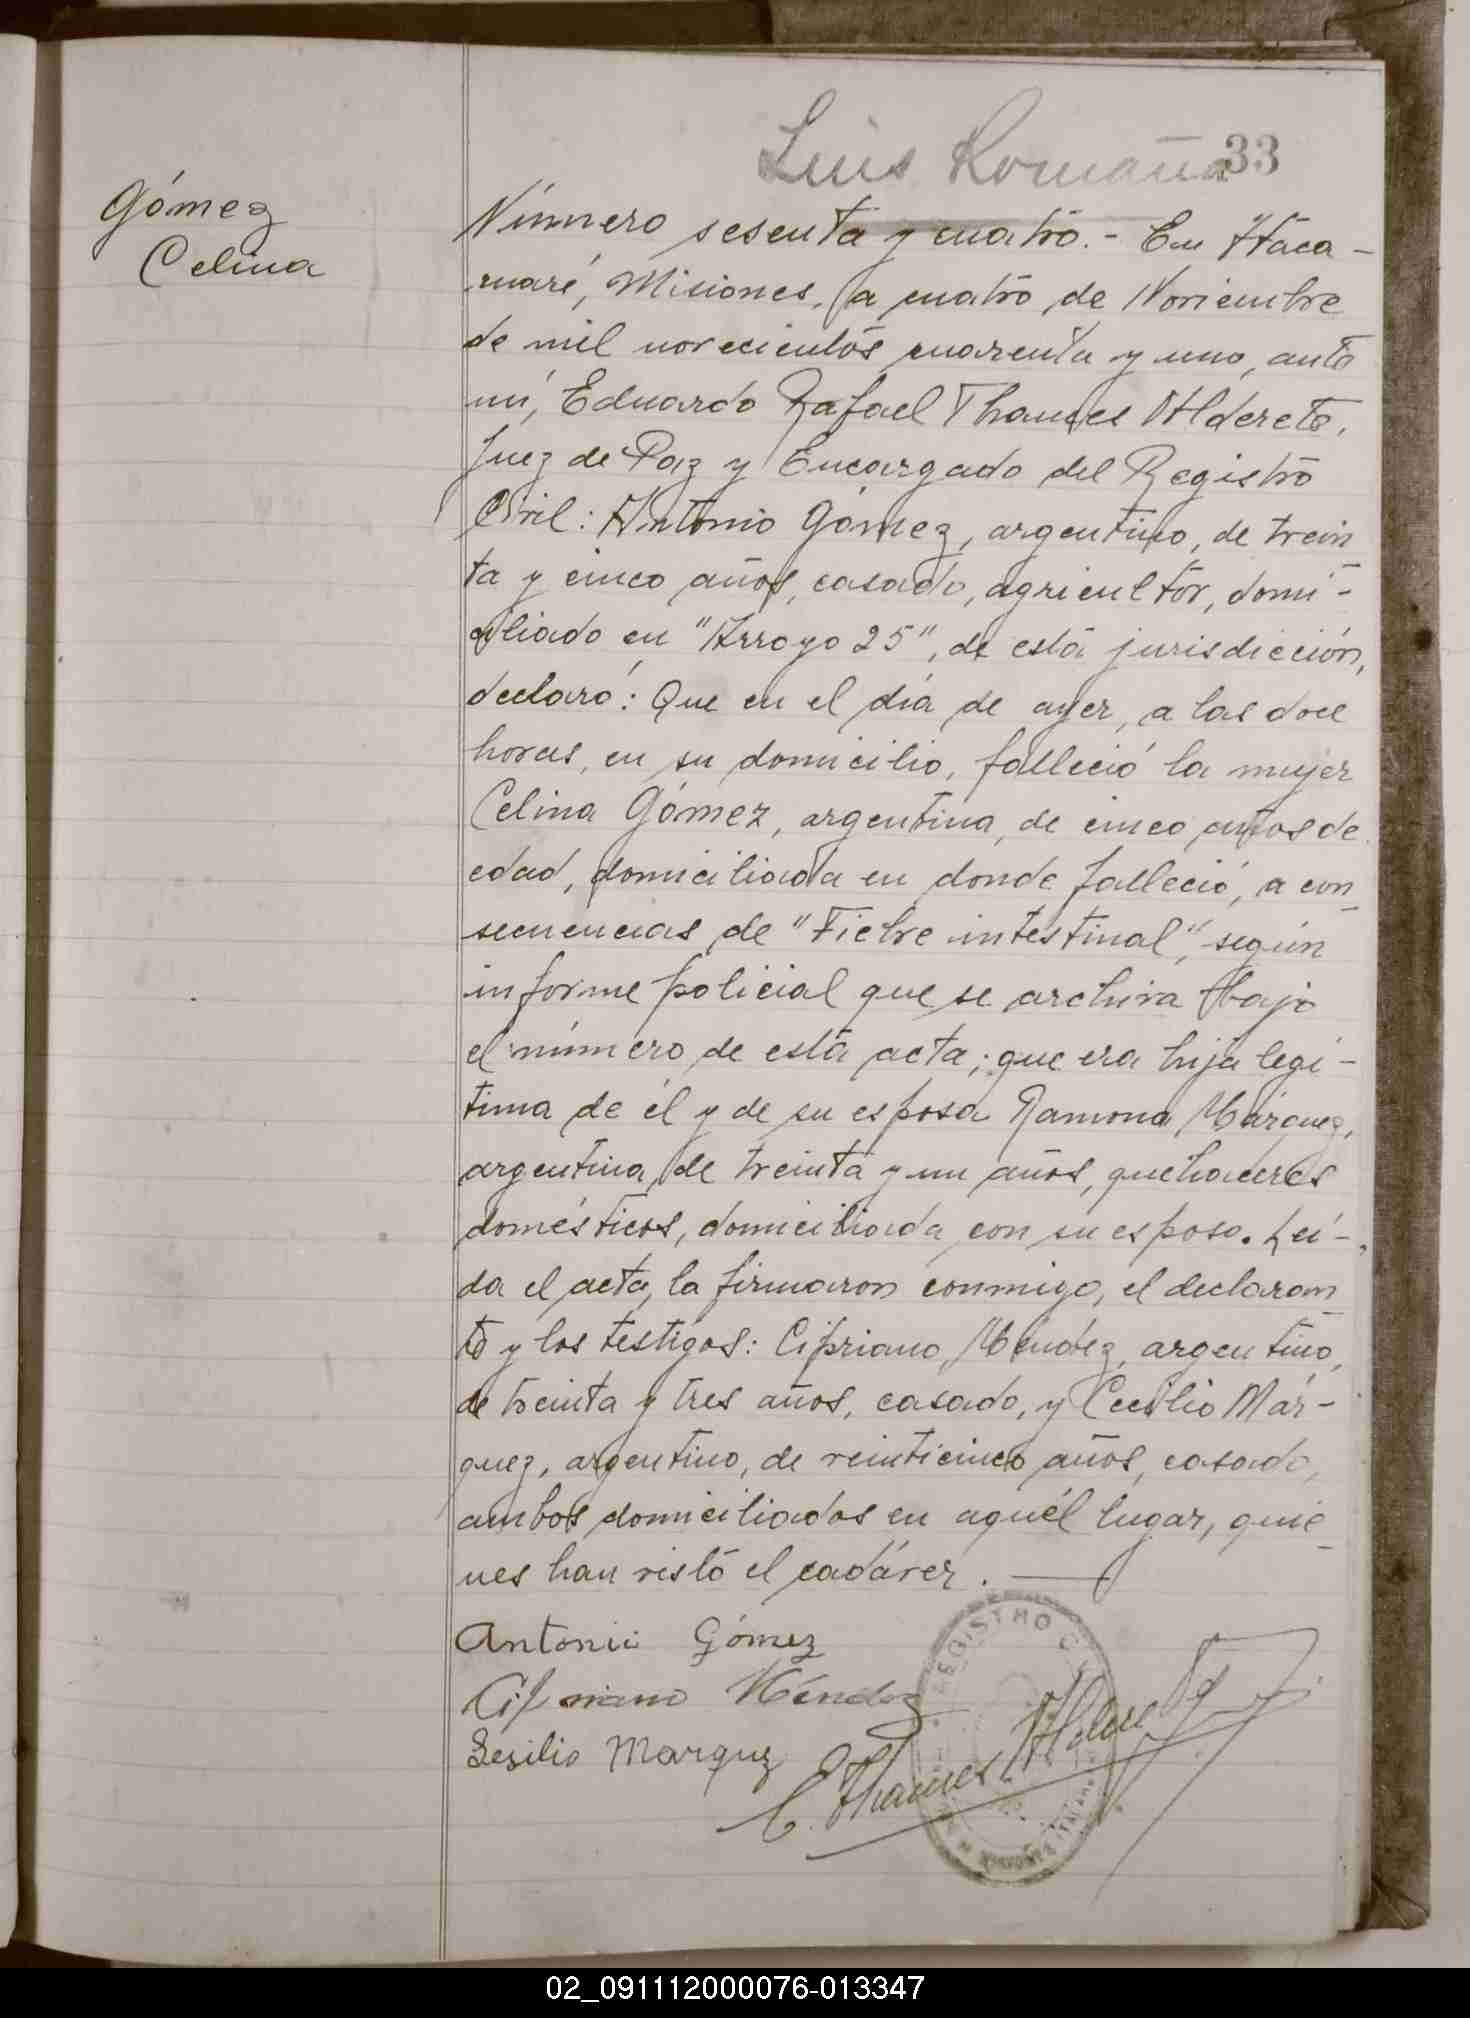 Luis Romaña
33
Gómez
Celina
Número sesenta y cuatro.- En Itaca-
ruaré, Misiones, a cuatro de Noviembre
de mil novecientos cuarenta y uno, ante
mí, Eduardo Rafael Thames Alderete,
Juez de Paz y Encargado del Registro
Civil: Antonio Gómez, argentino, de trein
ta y cinco años, casado, agricultor, domi-
ciliado en "Arroyo 25", de ésta jurisdicción,
declaró: Que en el día de ayer, a las doce
horas, en su domicilio, falleció la mujer
Celina Gómez, argentina, de cinco años de
edad, domiciliada en donde falleció, a con
secuencias de "Fiebre intestinal", según
informe policial que se archiva bajo
el número de ésta acta; que era hija legí-
tima de él y de su esposa Ramona Márquez,
argentina, de treinta y un años, quehaceres
domésticos, domiciliada con su esposo. Leí-
da el acta, la firmaron conmigo, el declaran
te y los testigos: Cipriano Méndez, argentino,
de treinta y tres años, casado, y Cecilio Már-
quez, argentino, de veinticinco años, casado,
ambos domiciliados en aquél lugar, quie
nes han visto el cadáver.
Antonio Gómez
Cipriano Méndez
Sesilio Marquez
E. Thames Alderete
REGISTRO
02_091112000076-013347